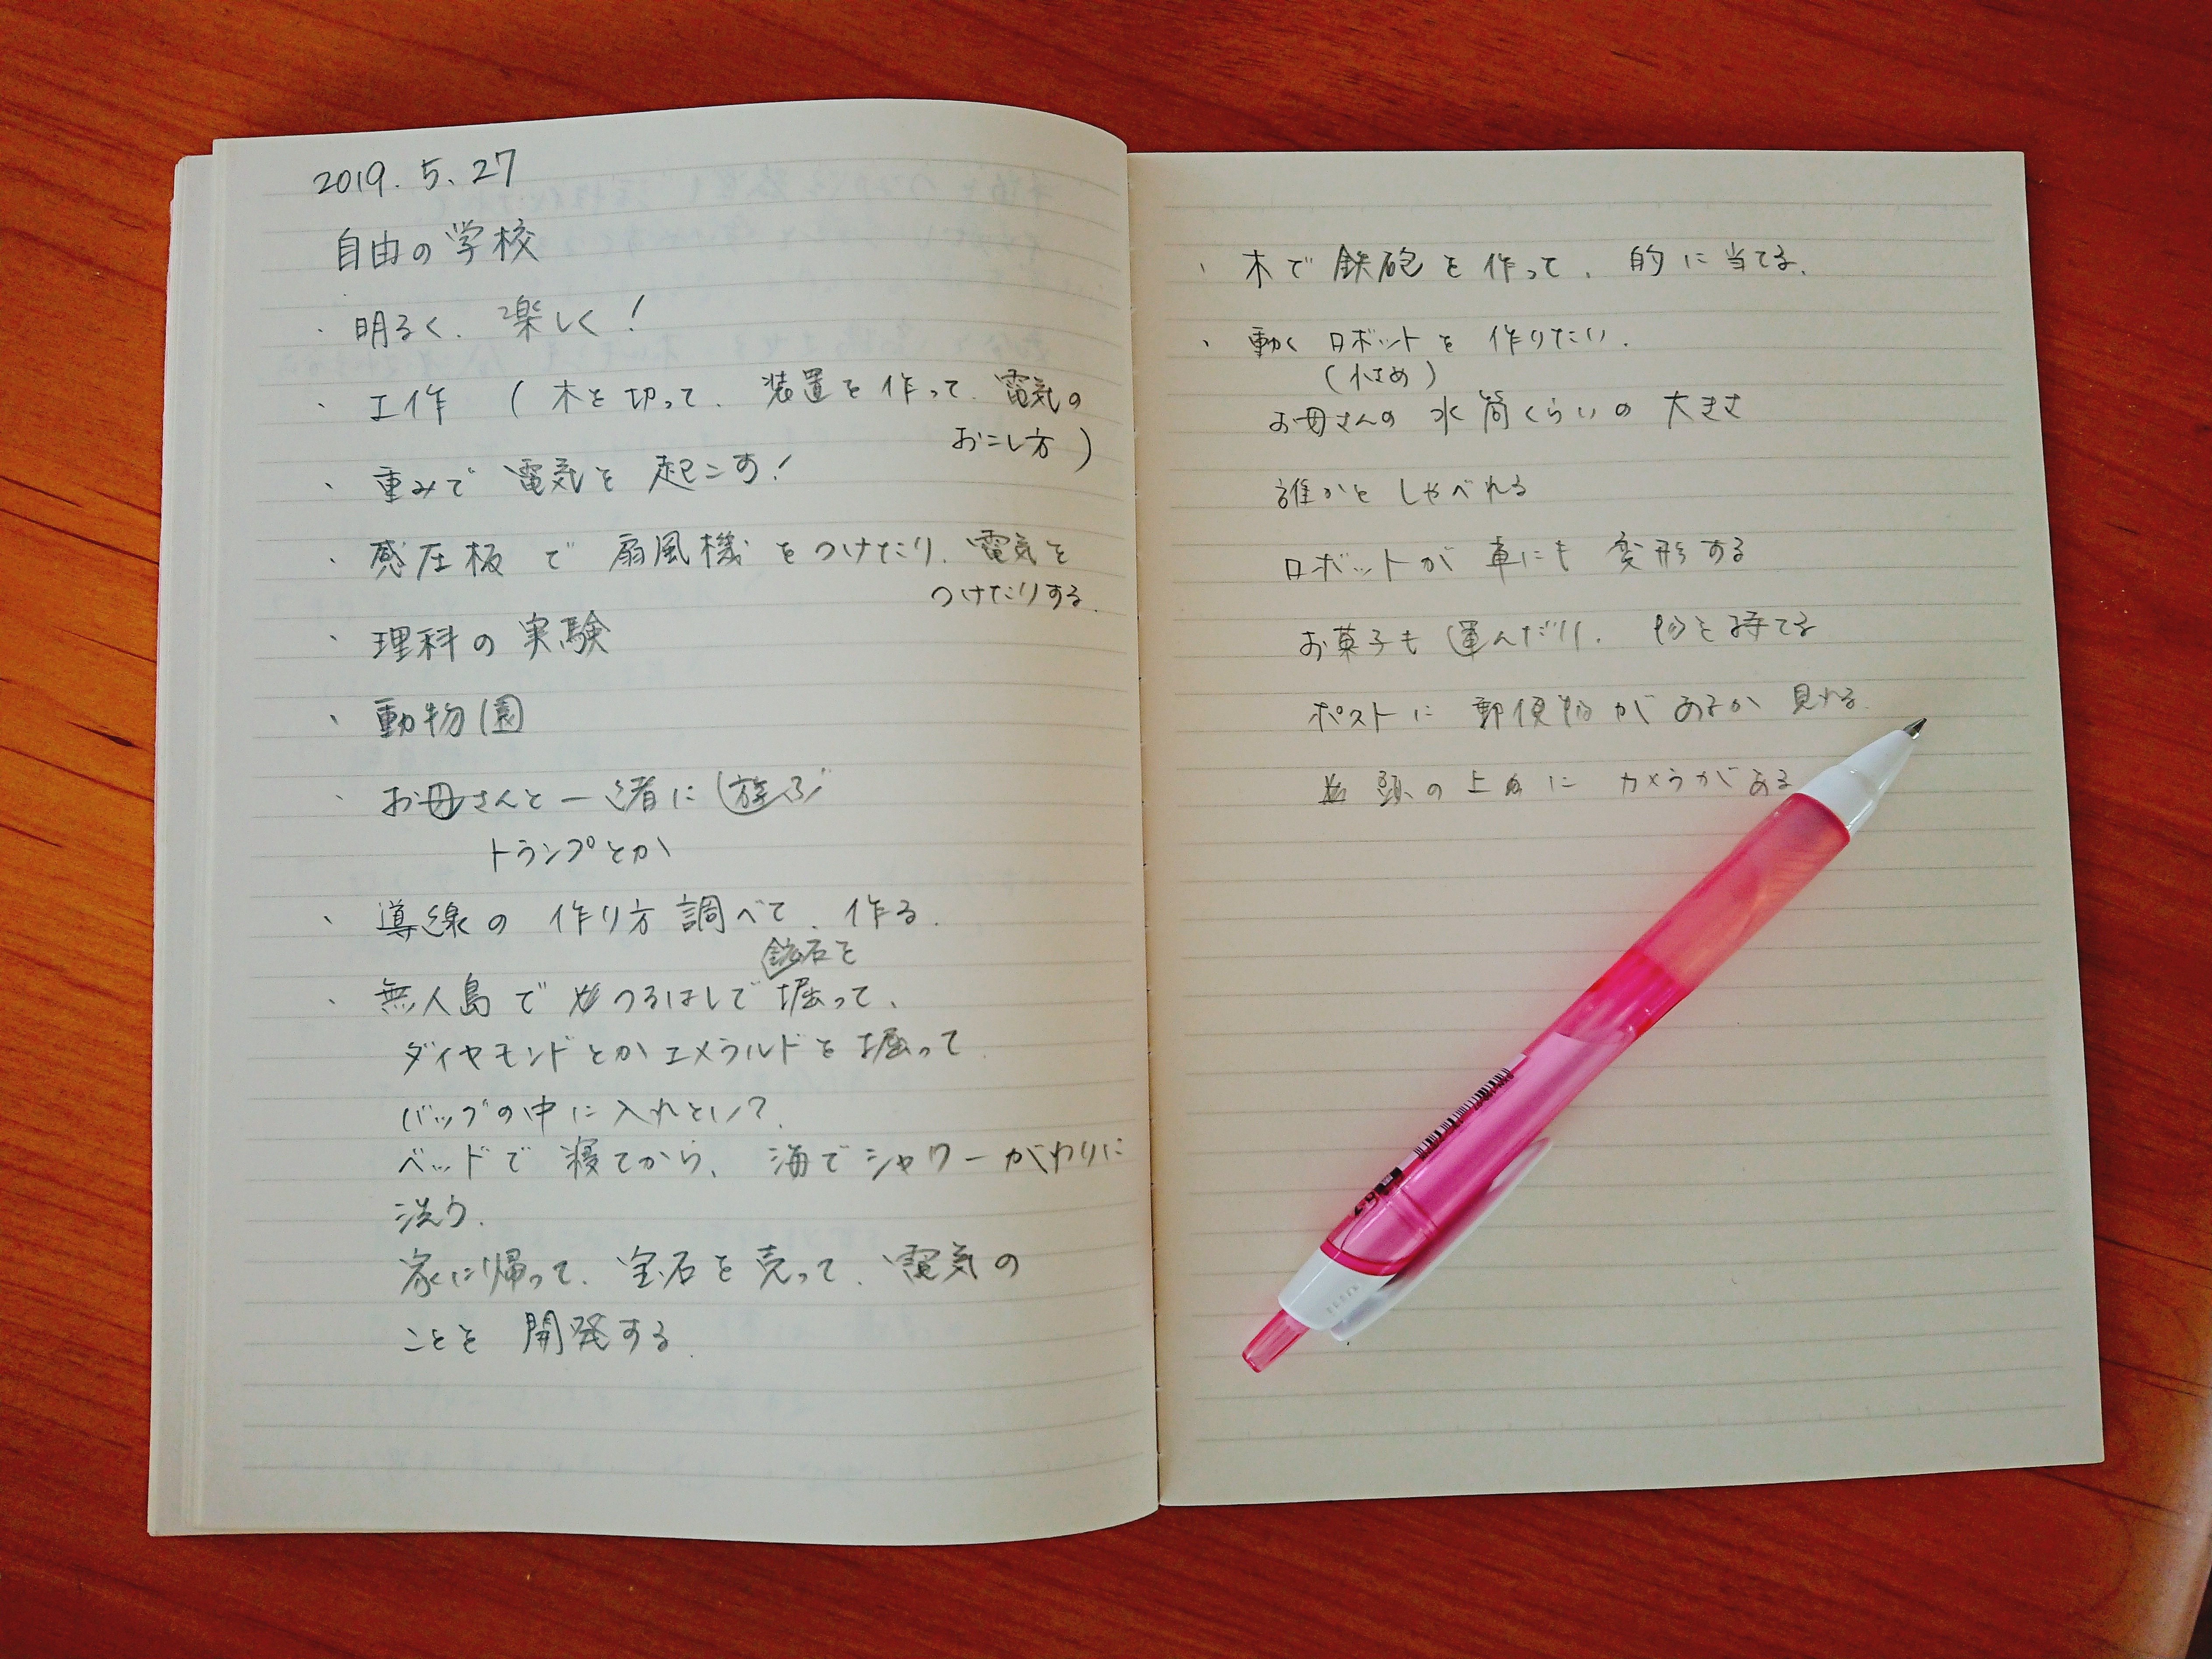 2019.5.27
自由の学校
・明るく、楽しく!
・工作 (木を切って、装置を作って、電気の
おこし方)
・重みで電気を起こす!
・感圧板で扇風機をつけたり、電気を
つけたりする。
・理科の実験
・動物園
・お母さんと一緒に遊ぶ
トランプとか
・導線の作り方調べて、作る。
鉱石を
・無人島でつるはしで掘って、
ダイヤモンドとかエメラルドを掘って
バッグの中に入れとい?
ベッドで寝てから、海でシャワーがわりに
洗う。
家に帰って、宝石を売って、電気の
ことを開発する
・木で鉄砲を作って、的に当てる。
・動くロボットを作りたい。
(小さめ)
お母さんの水筒くらいの大きさ
誰かとしゃべれる
ロボットが車にも変形する
お菓子も運んだり、物を持てる
ポストに郵便物があるか見れる。
頭の上にカメラがある
0.7